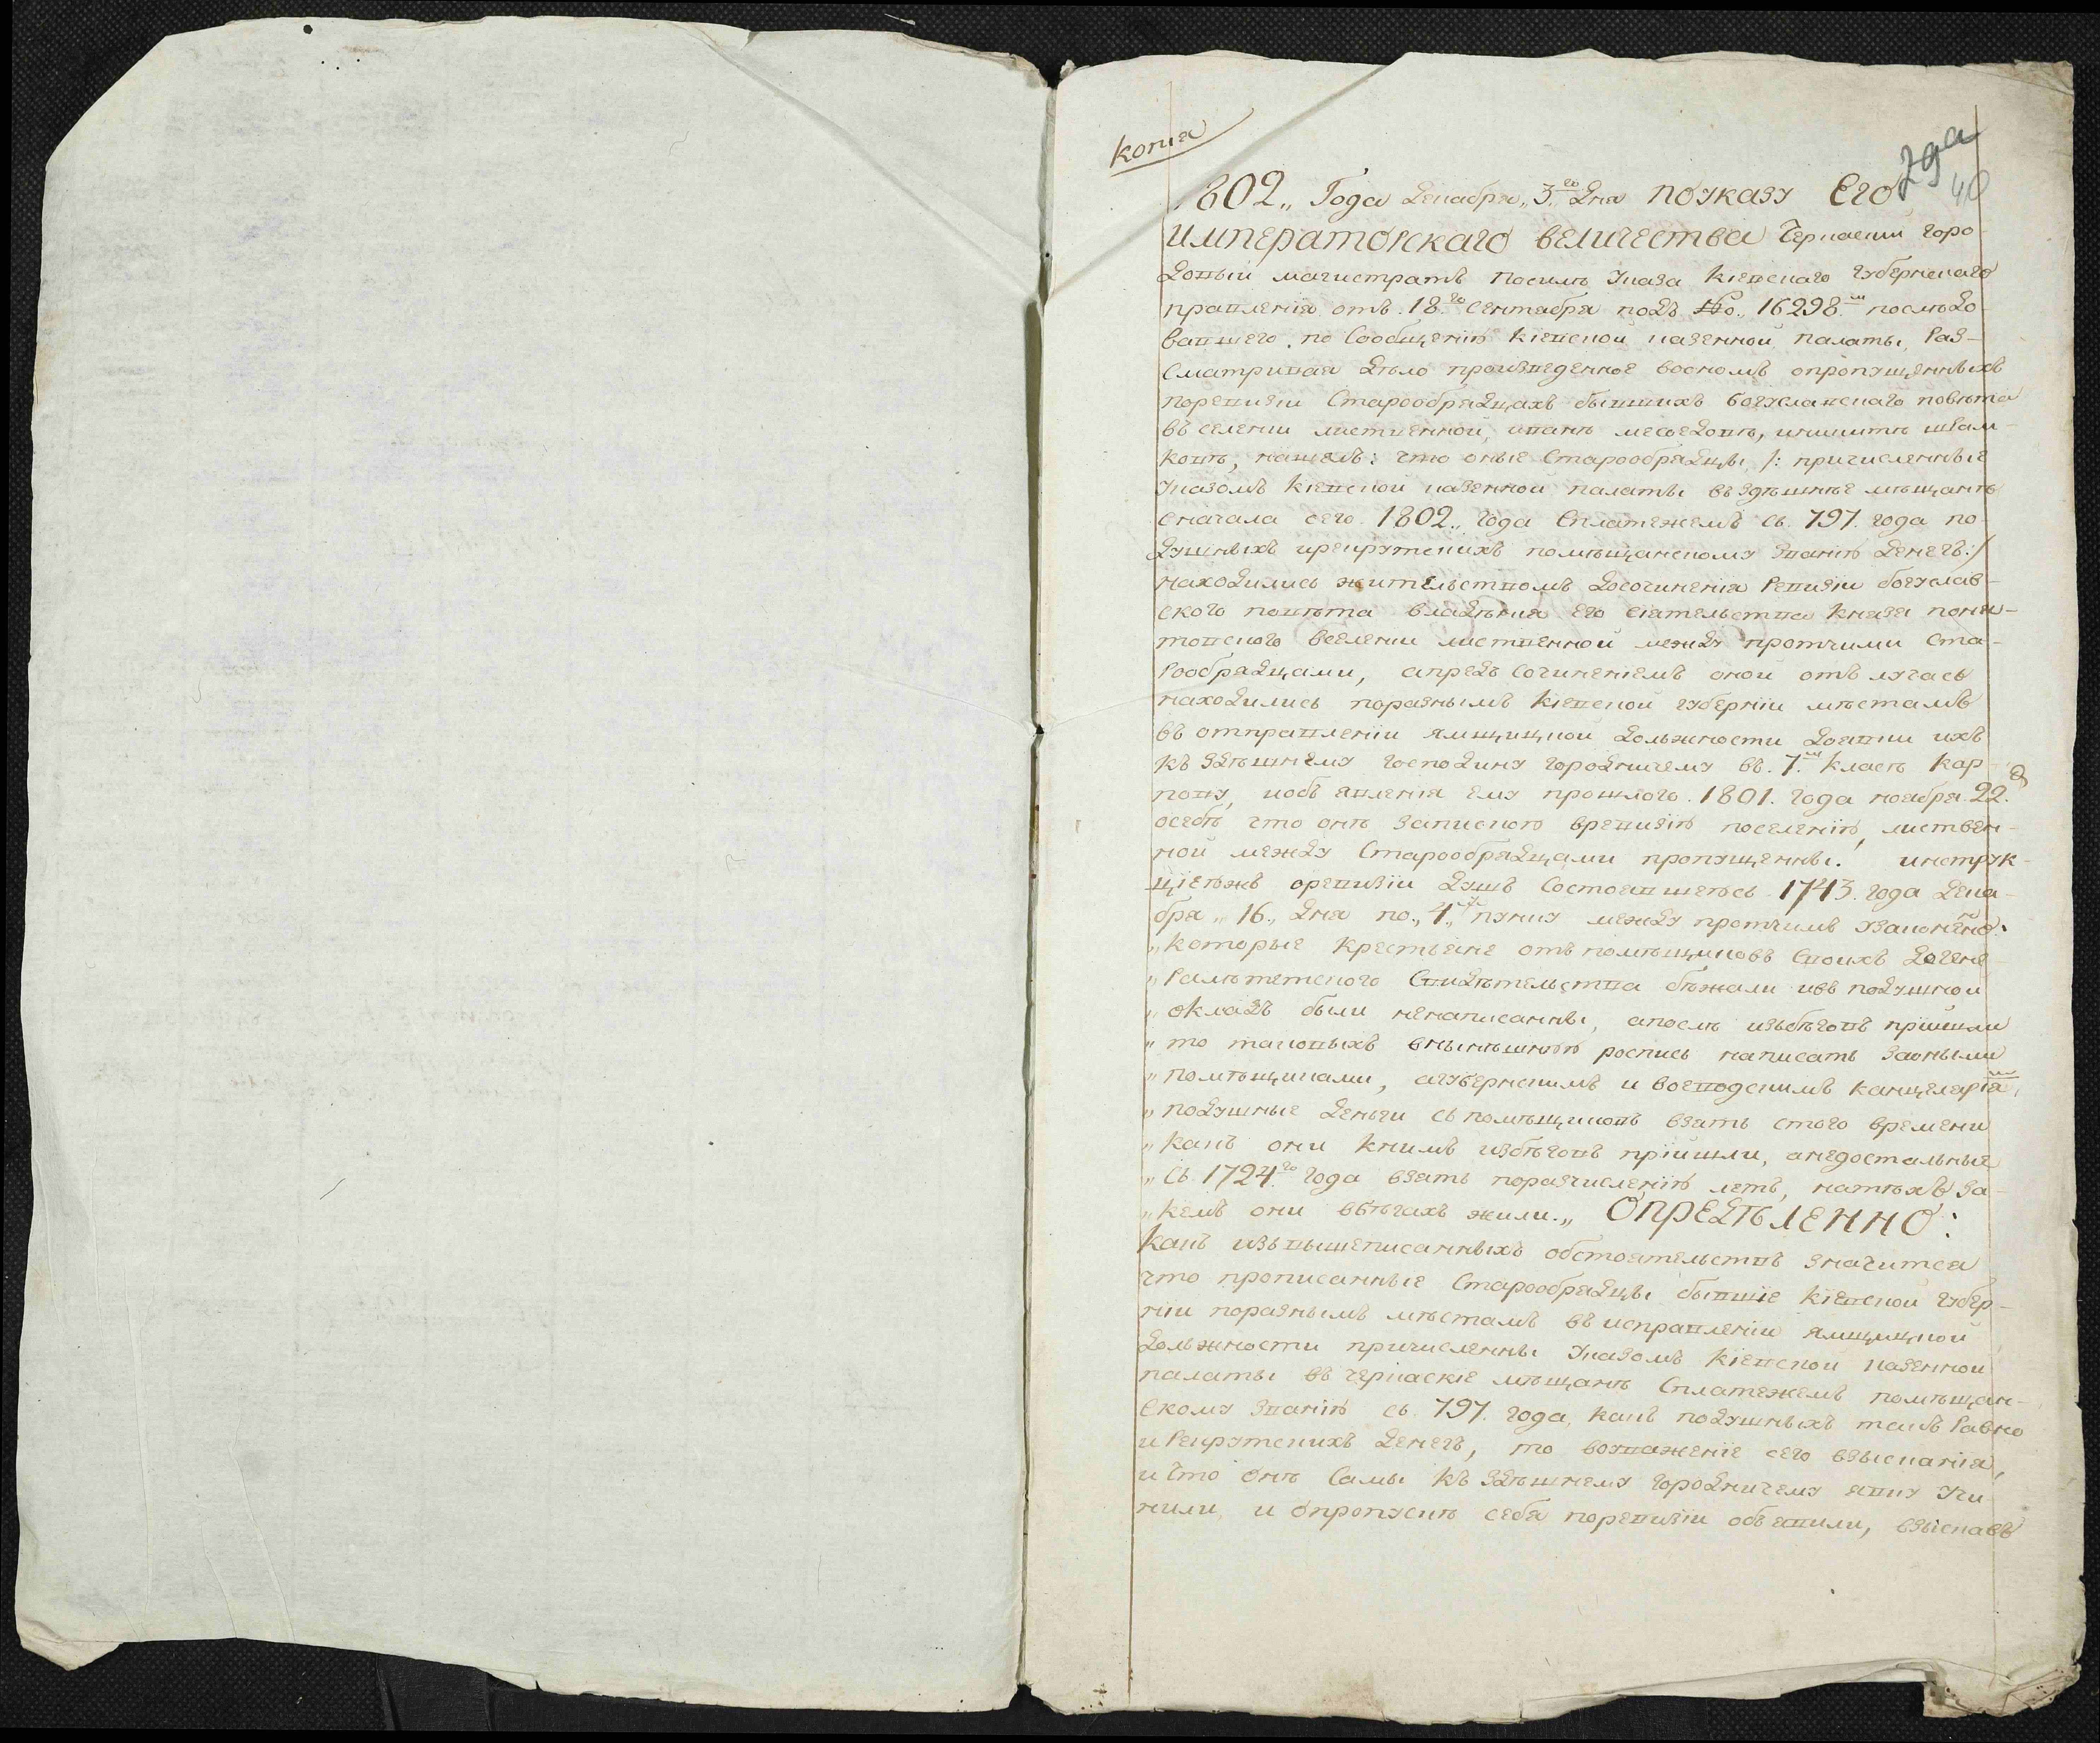 копия
29а
40
1802„ Года декабря„ 3.го дня ПОУКАЗУ ЕГО
ИМПЕРАТОРСКАГО ВЕЛИЧЕСТВА Черкаский горо-
довый магистратъ посилѣ указа киевскаго губернскаго
правления отъ 18.го сентября подъ №о. 16298.м послѣдо-
вавшего по сообщенію киевской казенной палаты, раз-
сматривая дѣло произведенное воономъ опропущенныхъ
поревизіи старообрядцахъ бывшихъ богуславскаго повѣта
въ селении лиственной,
нашелъ: что оные старообрядцы /: причисленные
указомъ киевской казенной палаты въ здѣшние мѣщанѣ
сначала сего 1802„ года сплатежемъ съ 797. года по-
душныхъ ирекрутскихъ помѣщанскому званію денегъ:/
находились жительствомъ досочинения ревизіи богуслав-
ского повѣта владѣния его сіятельства князя поня-
товского вселении лиственной между протчими ста-
рообрядцами, апредъ сочинениемъ оной отлучась
находились поразнымъ киевской губерніи мѣстамъ
въ отправлении ямщицкой должности доявки ихъ
къ здѣшнему господину городничему въ 7.м класѣ кар-
пову, иобъявления ему прошлого 1801. года ноября 22. д
осебѣ что онѣ запискою вревизію поселенію, листвен-
ной между старообрядцами пропущенны. инструк-
циеюжъ оревизіи душъ состоявшеюсь 1743. года дека-
бря „16„ дня по„ 4„му пункту между протчимъ узаконено:
„которые крестьяне отъ помѣщиковъ своихъ догене-
„ралитетского свидѣтельства бѣжали ивъ подушной
„окладъ были ненаписанны, апослѣ избѣговъ пришли
„то таковыхъ внынѣшнюю роспись написать заоными
„помѣщиками, агубернскимъ и воеводскимъ канцелярия,м
„подушные деньги съ помѣщиковъ взять стого времени
„какъ они книмъ избѣговъ прийшли, анедостальные
„съ 1724.го года взять поразчислению летъ, натѣхъ за-
„кемъ они вбѣгахъ жили.„ ОПРЕДѢЛЕННО:
какъ извышеписанныхъ обстоятельствъ значится
что прописанные старообрядцы бывшие киевской губер-
ніи поразнымъ мѣстамъ въ исправлении ямщицкой
должности причисленны указомъ киевской казенной
палаты въ черкаские мѣщанѣ сплатежемъ помѣщан-
скому званію съ 797. года, какъ подушныхъ такъ равно
и рекрутскихъ денегъ, то воуважение сего взыскания,
и что онѣ самы къ здѣшнему городничему явку учи-
нили, и опропускѣ себя поревизіи объявили, взыскавъ